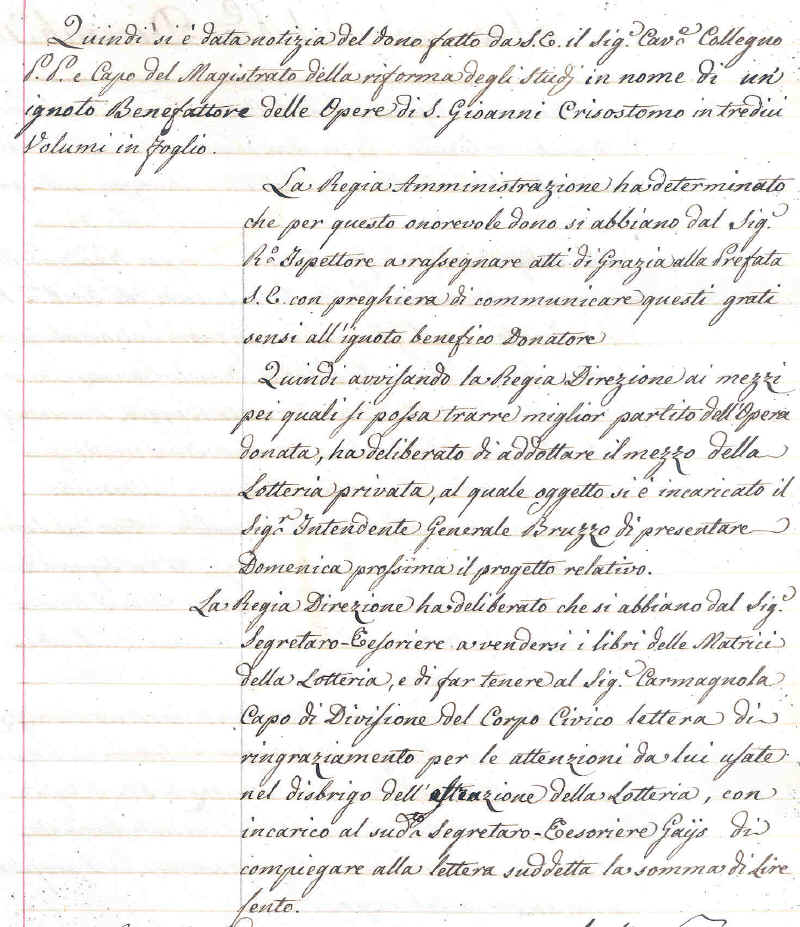 Quindi si è data notizia del dono fatto da S.E. il Sig.r Cav.e Collegno
P.P. e Capo del Magistrato della riforma degli Studj in nome di un'
ignoto Benefattore delle Opere di S. Gioanni Crisostomo in tredici
Volumi in foglio.
La Regia Amministrazione ha determinato
che per questo onorevole dono si abbiano dal Sig.r
R.o Ispettore a rassegnare atti di Grazia alla Prefata
S.E. con preghiera di communicare questi grati
sensi all'ignoto benefico Donatore
Quindi avvisando la Regia Direzione ai mezzi
pei quali si possa trarre miglior partito dell'Opera
donata, ha deliberato di addottare il mezzo della
Lotteria privata, al quale oggetto si è incaricato il
Sig.r Intendente Generale Bruzzo di presentare
Domenica prossima il progetto relativo.
La Regia Direzione ha deliberato che si abbiano dal Sig.r
Segretaro-Tesoriere a vendersi i libri delle Matrici
della Lotteria, e di far tenere al Sig.r Carmagnola
Capo di Divisione del Corpo Civico lettera di
ringraziamento per le attenzioni da lui usate
nel disbrigo dell'estrazione della Lotteria, con
incarico al sud.o Segretaro-Tesoriere Gaÿs di
compiegare alla lettera suddetta la somma di Lire
cento.